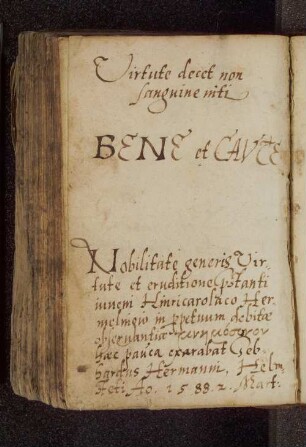 Virtute decet non
sanguine niti
BENE et CAVTE
Nobilitate generis Vir-
tute et eruditione pstanti
iuueni Hinrico
in ppetuum debitæ
obseruantiæ
hæc pauca exarabat Geb-
hardus Hermanni, Helm
Ao. 1588. 2. Mart.